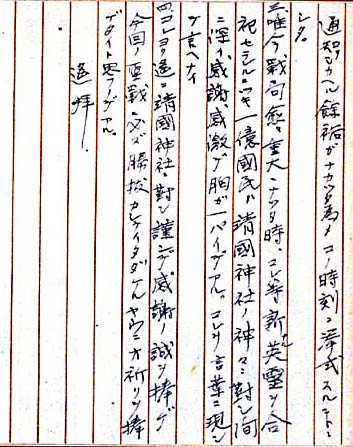 通知シカヘル餘裕ガナカツタ為メコノ時刻ニ挙式スルコトニ
シタ。
三、唯今戰局愈々重大ナツタ時、コレ等新英靈ヲ合
祀セラルルニツキ一億國民ハ靖國神社ノ神々ニ對シ洵
ニ深イ感謝、感激デ胸ガ一パイデアル。コレヲ言葉ニ現シ
テ言ヘナイ
四、コレヨリ遥ニ靖國神社ニ對シ謹ンデ感謝ノ誠ヲ捧ゲ
今回ノ戰ニ必ズ勝抜カシテイタダケルヤウニオ祈リヲ捧
ゲタイト思フデアル。
遥拝!